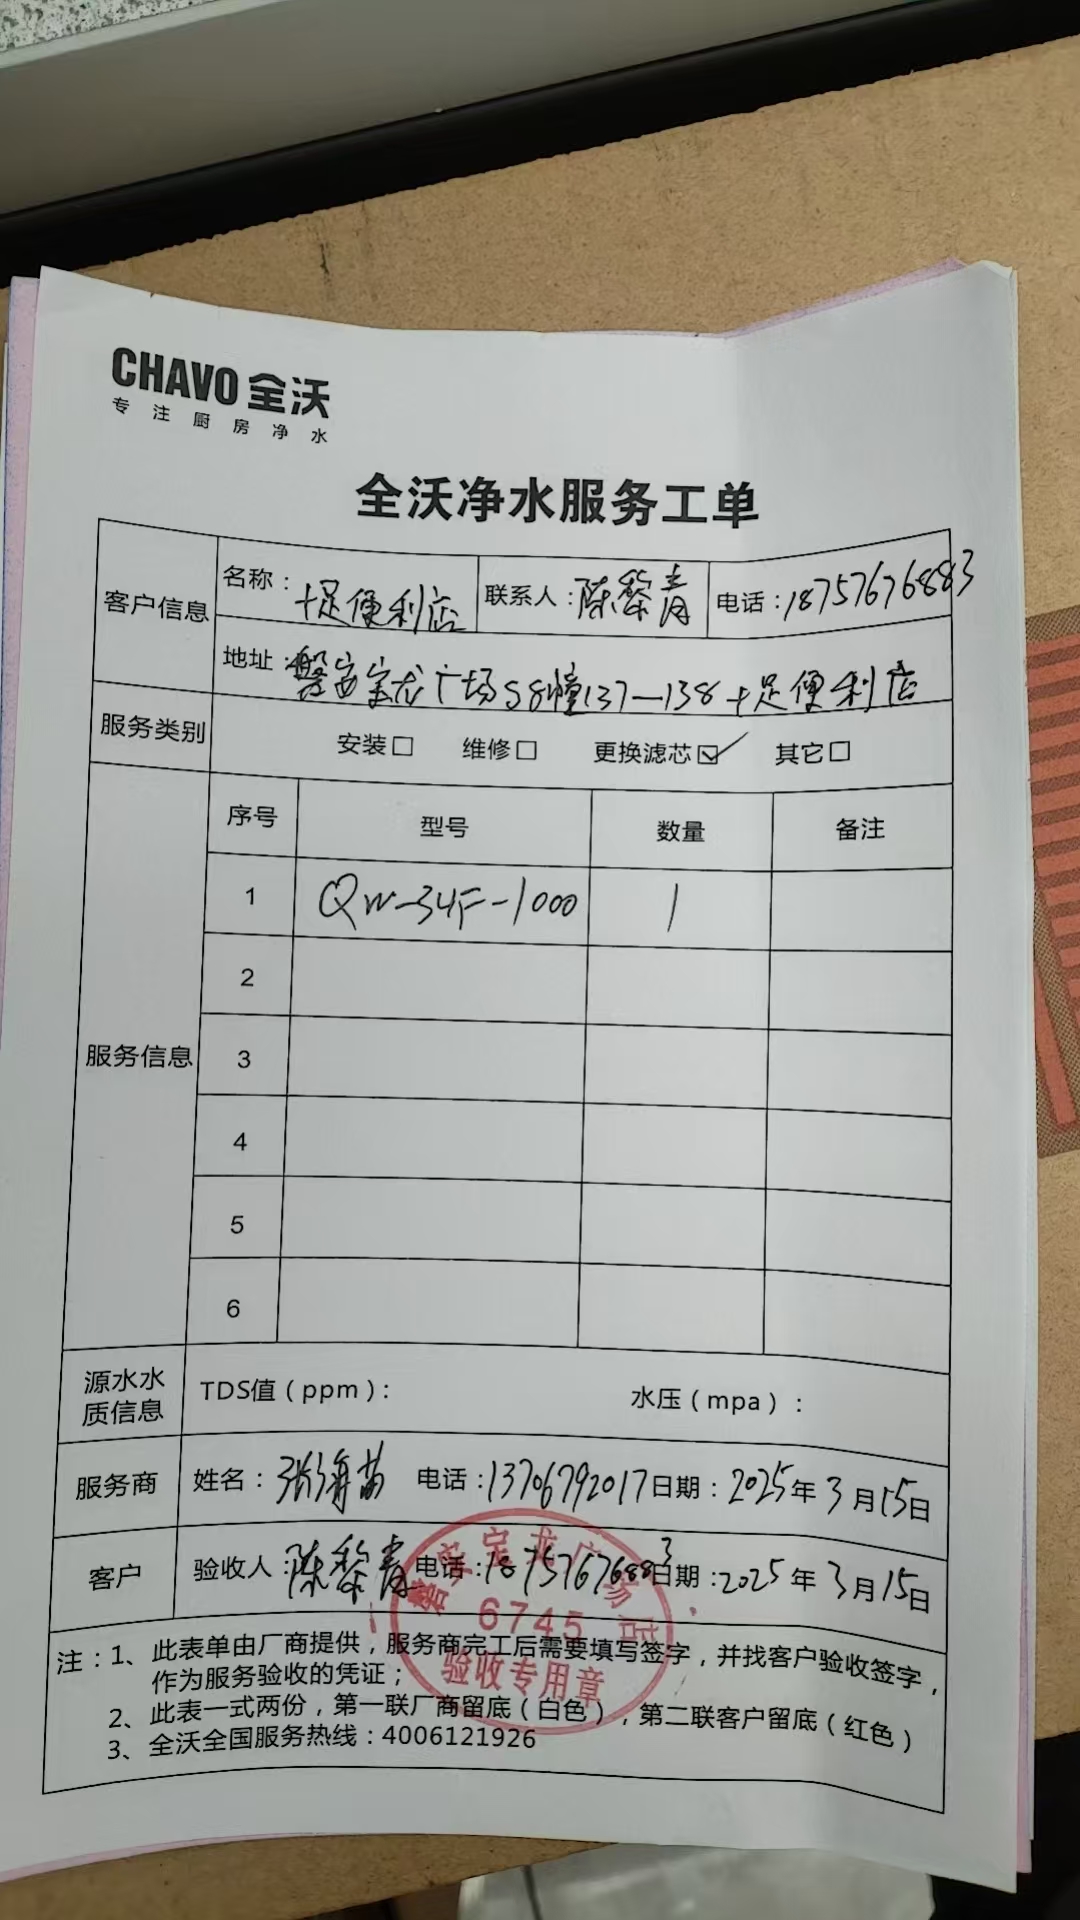 CHAVO 全沃
专注厨房净水
全沃净水服务工单
客户信息
名称：十足便利店
联系人：陈黎青
电话：18757676883
地址：磐安宝龙广场S8幢137—138十足便利店
服务类别
安装□ 维修□ 更换滤芯☑ 其它□
服务信息
序号 型号 数量 备注
1 QW-34F-1000 1
2
3
4
5
6
源水水质信息
TDS值（ppm）： 水压（mpa）：
服务商 姓名：张海苗 电话：13706792017 日期：2025年3月15日
客户 验收人：陈黎青 电话：18757676883 日期：2025年3月15日
磐安宝龙广场店
6745
验收专用章
注：1、此表单由厂商提供，服务商完工后需要填写签字，并找客户验收签字，
作为服务验收的凭证；
2、此表一式两份，第一联厂商留底（白色），第二联客户留底（红色）
3、全沃全国服务热线：4006121926